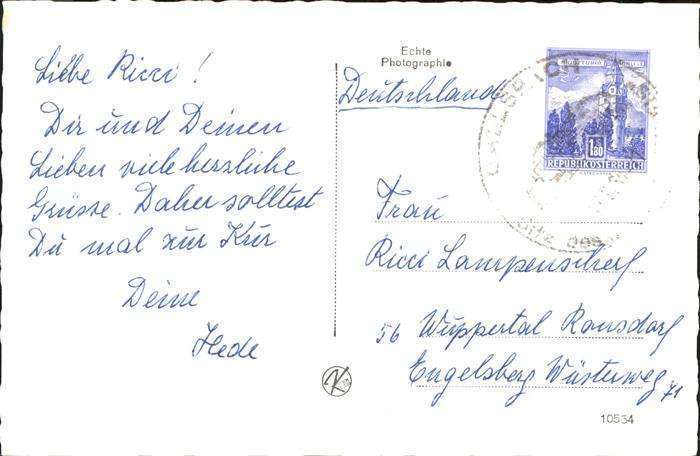 Liebe Ricci!
Dir und Deinen
Lieben viele herzliche
Grüsse. Daher solltest
Du mal zur Kur
Deine
Hede
Echte
Photographie
Deutschland
GALLSPACH
1.80
REPUBLIK ÖSTERREICH
Frau
Ricci Lampenscherf
56 Wuppertal Ronsdorf
Engelsberg Wüsterweg 71
10554